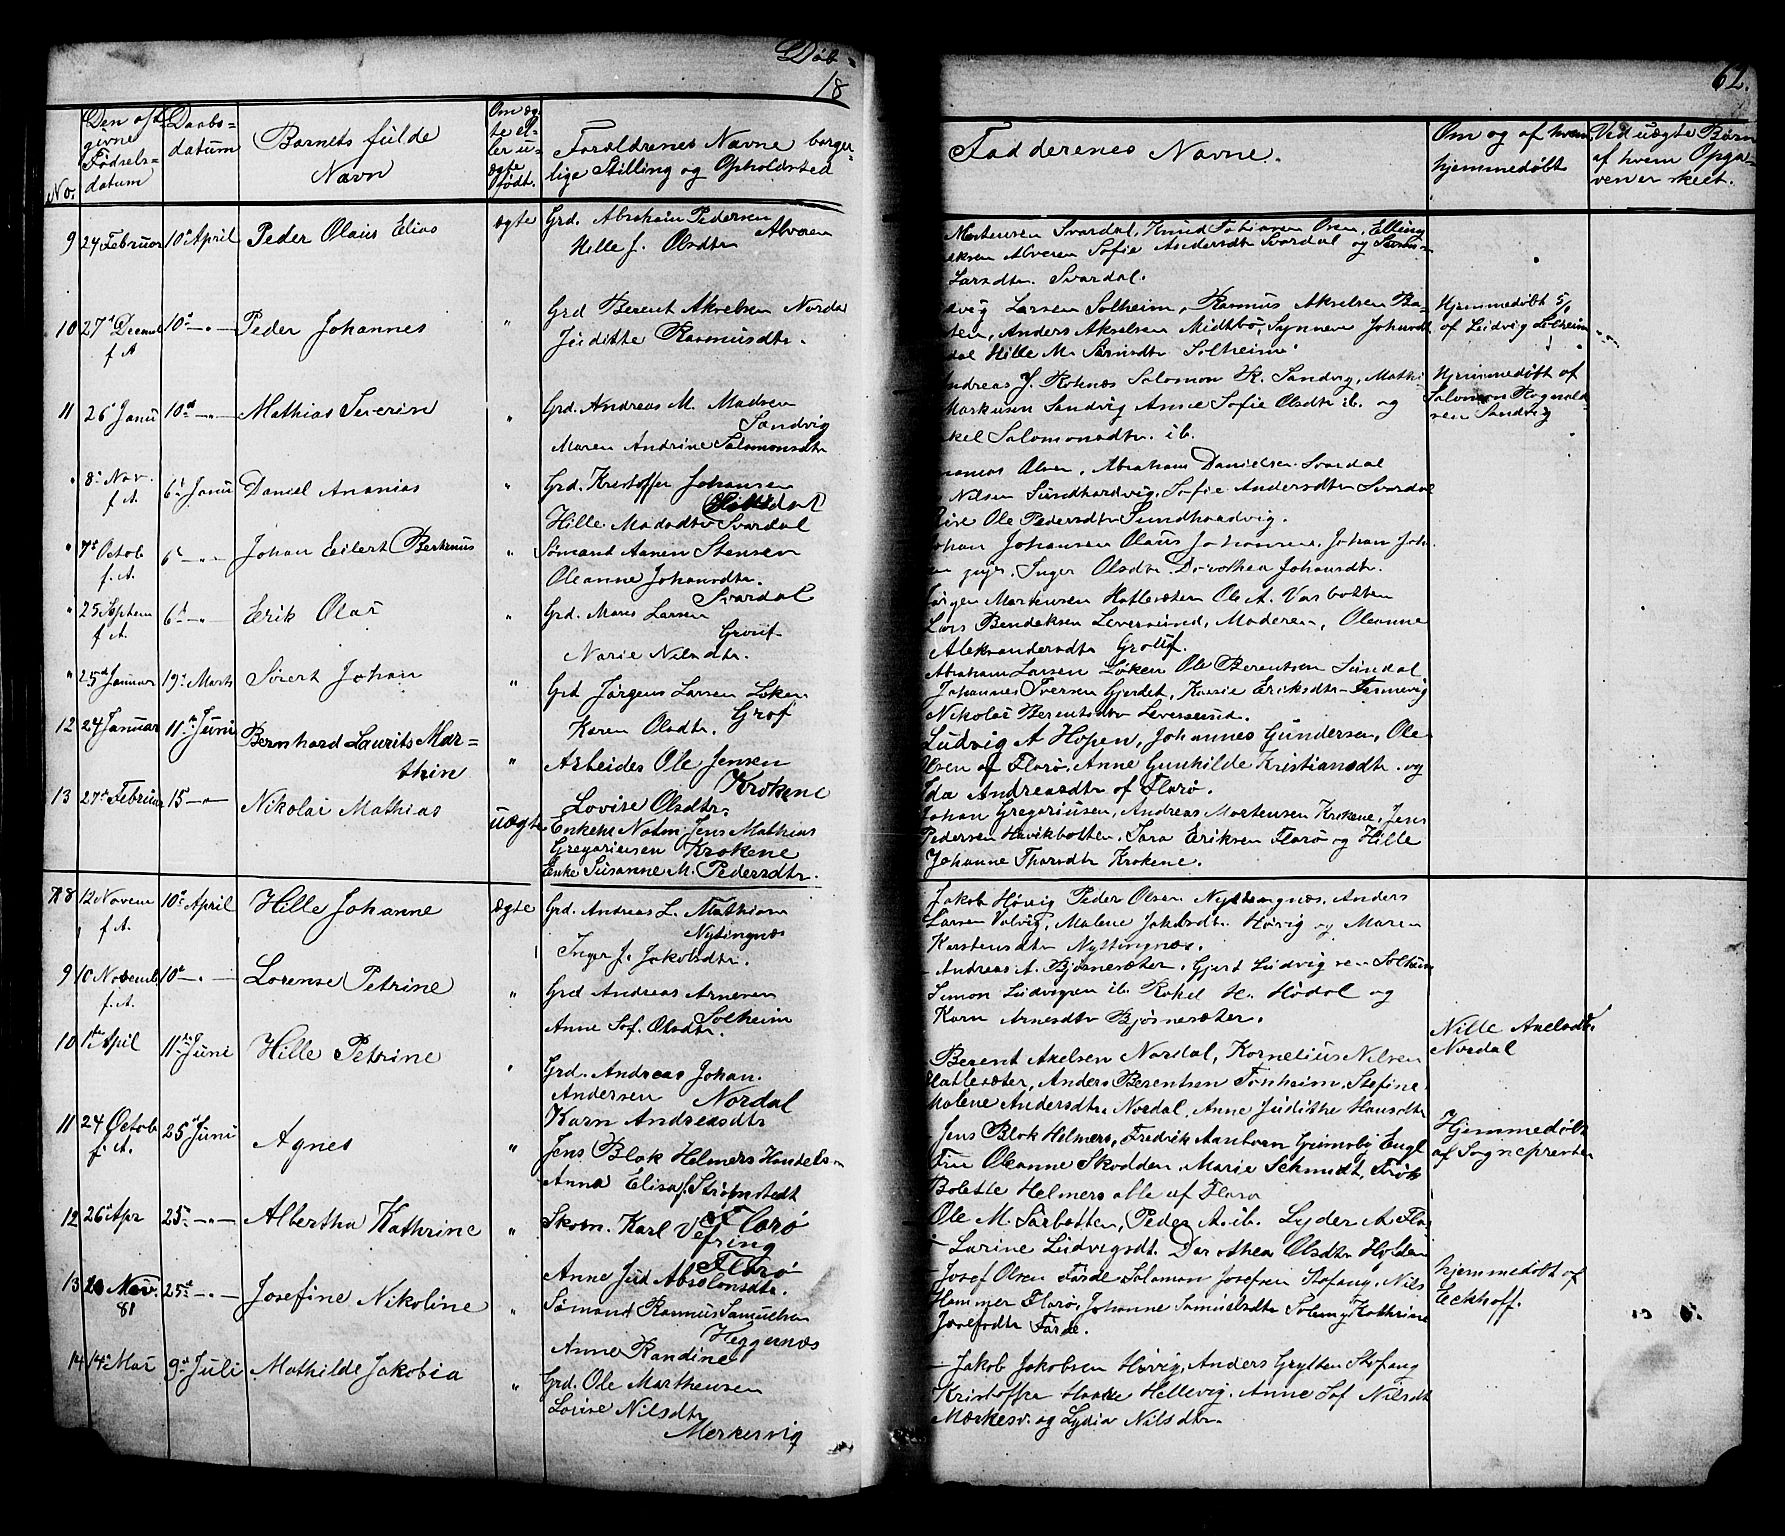 Døb
18
62.
No.
Den op-
givne
Fødsels-
datum
Daabs-
datum
Barnets fulde
Navn
Om æg-
te el-
ler u-
ægte
født.
Forældrenes Navne borger-
lige Stilling og Opholdsted
Faddernes Navne.
Om og af hvem
hjemmedøbt
Ved uægte Børn
af hvem Opga-
ven er skeet.
9 24 Februar 10d April Peder Olaus Elias ægte Grd. Abraham Pedersen
Alveren
Hille J. Olsdtr
Mortensen Svardal, Knud Tobiasen Osen, Elling
Alveren Sofie Andersdtr Svardal og
Larsdtr. Svardal.
10 27d Decemb 10d -"- Peder Johannes " Grd Berent Akselsen Nordal
f A Judithe Rasmusdtr.
Larsen Solheim, Rasmus Akselsen
Anders Akselsen Midtbø, Synneve Johansdt
Hille M. Solheim
Hjemmedøbt 5/1
af Ludvig Solheim
11 26d Janu 10d -"- Mathias Severin " Grd. Andreas M. Madsen
Sandvig
Maren Andrine Salomonsdtr
Andreas J. Roknæs Salomon R. Sandvig, Mathi
Markusen Sandvig Anne Sofie Olsdtr ib. og
Salomonsdtr. ib.
Hjemmedøbt af
Salomon Ragnald-
sen Sandvig
" 8d Nov. 6d Janu Daniel Ananias " Grd. Kristoffer Johansen
f. A.
Hille Madsdtr Svardal
Alver, Abraham Danielsen Svardal
Nilsen Sundhordvig, Sofie Andersdtr Svardal
Ole Pedersdtr Sundhordvig.
" 7d Octob 6d -"- Johan Eilert Berthinus " Sømand Aanen Stensen
f. A. Oleanne Johansdtr.
Svardal
Johan Johansen Olaus Johannesen, Johan Joh
Inger Olsdtr. Dorothea Johansdtr.
" 25 Septem 6d -"- Erik Olai " Grd. Mons Larsen
f A. Grov
Marie Nilsdtr.
Jørgen Markusen Hatlesæter Ole A. Varbotten
Lars Bendiksen Leversund, Moderen, Oleanne
Aleksandersdtr Grov.
" 25d Januar 19d Marts Sivert Johan " Grd Jørgens Larsen Løken
Karen Olsdtr. Grof
Abraham Larsen Løken Ole Berentsen Sundal
Johannes Iversen Gjerdet, Karsie Eriksdtr Tennevig
Nikolai Berentsdtr Leversund.
12 24 Januar 11te Juni Bernhard Laurits Mar-
thin " Arbeides Ole Jensen
Krokene
Lovise Olsdtr.
Ludvig A Hopen, Johannes Gundersen, Ole
Olsen af Florø, Anne Gunhilde Kristiansdtr. og
Ida Andreasdtr af Florø.
13 27de Februar 15 -"- Nikolai Mathias uægte Enkem. Jens Mathias
Gregoriussen Krokene
Enke Susanne M. Pedersdtr.
Johan Gregoriusen, Andreas Mortensen Krokene, Jens
Pedersen Havikbotten, Sara Eriksen Florø og Hille
Johanne Thorsdtr Krokene.
8 12 Novem 10d April Hille Johanne ægte Grd. Andreas L. Mathisen
f A. Nytingnæs
Inger J. Jakobsdtr.
Jakob Høvig Peder Olsen Nyttingnæs, Anders
Larsen Valvig, Malene Jakobsdt. Høvig og Maren
Karstensdtr Nyttingnæs.
9 10 Novemb 10d -"- Lorense Petrine " Grd Andreas Arnesen
f. A. Anne Sof. Olsdtr. Solheim
- Andreas A. Bjørnesæter, Gjert Ludvigsen Solheim
Simon Ludvigsen ib. Rakel H. Hødal og
Karn Arnesdtr Bjørnesæter.
10 1te April 11te Juni Hille Petrine " Grd. Andreas Johan.
Andersen Nordal
Karn Andreasdtr
Berent Axelsen Nordal, Kornelius Nilsen
Hatlesæter, Anders Berentsen Tonheim, Stefine
Malene Andersdtr. Nordal, Anne Judithe Hansdtr
Nille Axelsdtr
Nordal
11 24 Octob 25d Juni Agnes " Jens Blok Helmers Handels-
f. A. Anna Elisa f. Strømstedt
Florø
Jens Blok Helmers, Fredrik Grimsby Engl
Fru Oleanne Skodden, Marie Schmidt, Frøk
Bolette Helmers alle af Florø
Hjemmedøbt
af Sognepresten
12 26d Apr 25 -"-"- Albertha Kathrine " Skom. Karl Vefring
Florø
Anne Jud Absolonsdtr.
Ole M. Sørbotten, Peder A. ib. Lyder A Flo
Larine Ludvigsdt. Dorothea Olsdtr Hylsen
13 20 Nov. 25d -"- Josefine Nikoline " Sømand Rasmus Samuelsen
81 Heggernæs
Anne Randine
- Josef Olsen Førde Salomon Josefsen Stofang, Nils
Hammer Florø, Johanne Samuelsdtr Solem, Kathrine
Josefsdtr Førde.
hjemmedøbt af
Eckhoff.
14 14de Mai 9d Juli Mathilde Jakobia " Grd. Ole Marthensen
Lovise Nilsdtr
Merkesvig
- Jakob Jakobsen Høvig, Anders Grytten Stofang
Kristoffer Haake Hellevig, Anne Sof Nilsdt
Mærkesv. og Lydia Nilsdtr.